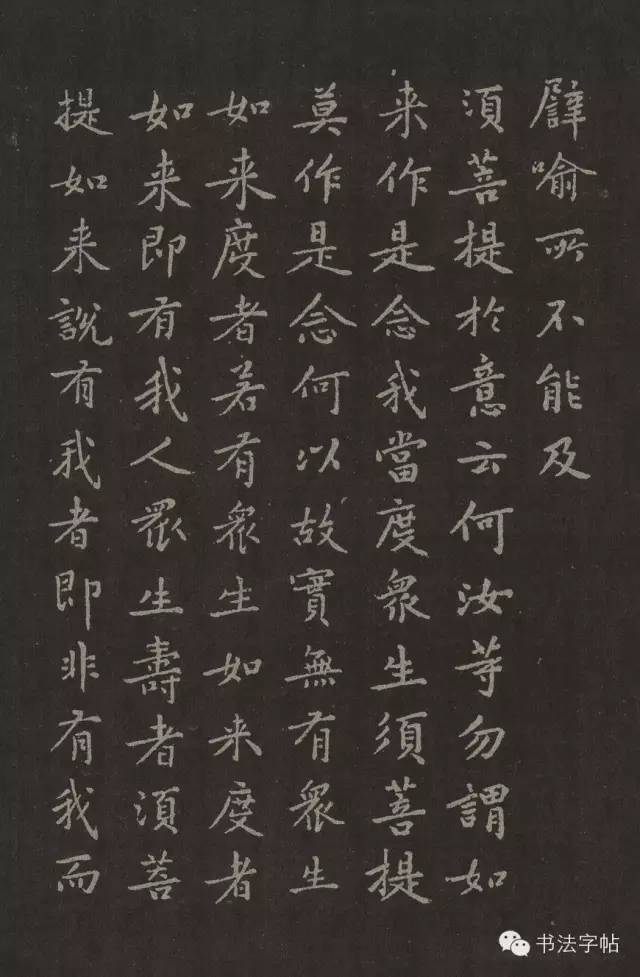 譬喻所不能及
須菩提於意云何汝等勿謂如
来作是念我當度眾生須菩提
莫作是念何以故實無有眾生
如来度者若有眾生如来度者
如来即有我人眾生壽者須菩
提如来說有我者即非有我而
书法字帖